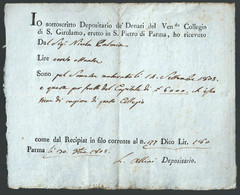 Io sottoscritto Depositario de' Denari del Ven.do Collegio
di S. Girolamo, eretto in S. Pietro di Parma, ho ricevuto
Dal Sig.
Lire cento
Sono pel Semestre maturato li 12 Settembre 1802.
e questo pel frutto del Capitale di £ 6000. che
di ragione di questo Collegio
come dal Recipiat in filo corrente al n. 977 Dico Lir. 180
Parma li 30. 1802.
Depositario.